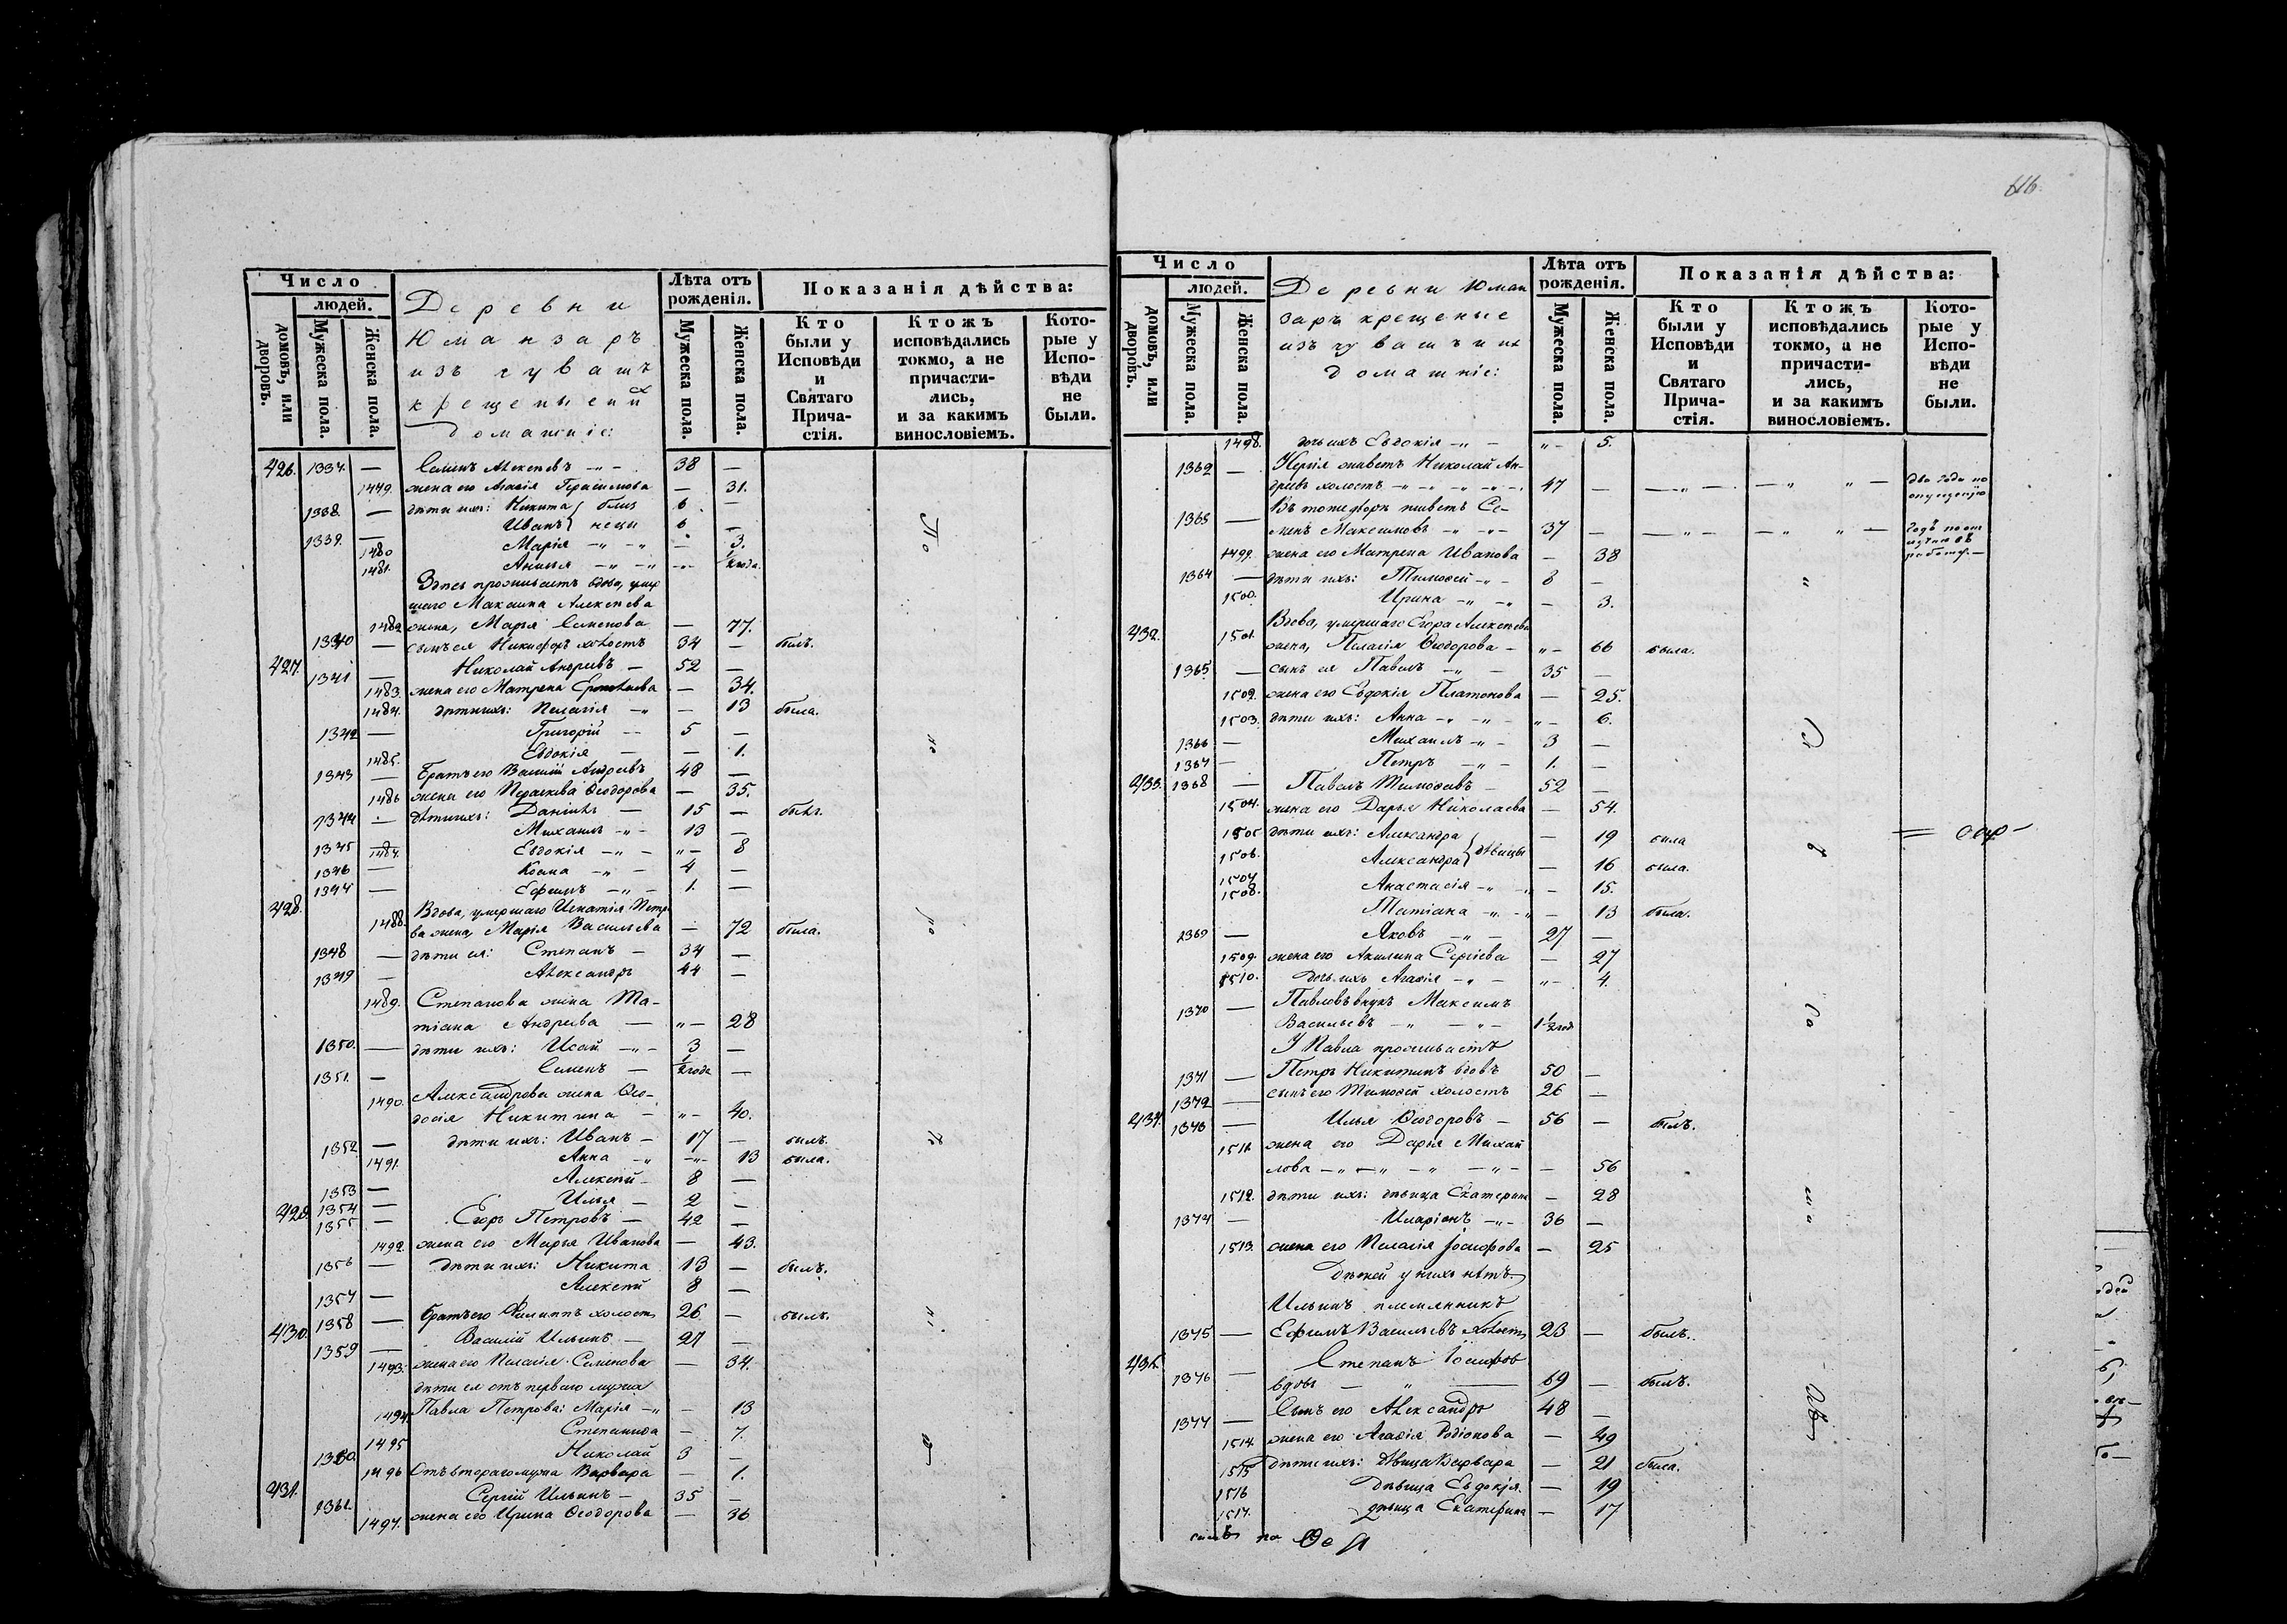 Число
людей.
домовъ, или дворовъ.
Мужеска пола.
Женска пола.
Деревни
Юманзаръ
изъ чувашъ
крещеные и ихъ
домашніе:
Лѣта отъ рожденія.
Мужеска пола.
Женска пола.
Показанія дѣйства:
Кто были у Исповѣди и Святаго Причастія.
Ктожъ исповѣдались токмо, а не причастились, и за какимъ винословіемъ.
Которые у Исповѣди не были.
426. 1337. — Семенъ Алексѣевъ —„— 38 —
1479. жена его Агафія Герасимова — 31.
1338. — дѣти ихъ: Никита } близ 6 —
1339. — Иванъ } нецы 6 —
1480 Марія —„—„ — 3.
1481. Анисья —„—„ —„— ½ года.
Здѣсь проживаетъ вдова, умер
шаго Максима Алексѣева
1482 жена, Марья Семенова — 77.
1340 — сынъ ея Никифоръ холостъ 34 — былъ.
427. 1341 — Николай Андреевъ — 52 —
1483. жена его Матрена — 34.
1484. дѣти ихъ: Пелагія —„ — 13 была.
1342 — Григорій — 5 —
1485. Евдокія — — 1.
1343 — Братъ его Василій Андреевъ 48 —
1486 жена его Параскева Ѳеодорова — 35.
1344 — дѣти ихъ: Даніилъ — 15 — былъ.
1345 — Михаилъ —„— 13 —
1487. Евдокія —„— „— 8
1346 — Козма —„— 4 —
1347 — Ефимъ —„— 1. —
428. Вдова, умершаго Игнатія Петро
1488. ва жена, Марія Васильева — 72 была.
1348 — дѣти ея: Степанъ — 34 —
1349 — Александръ 44 —
1489. Степанова жена Та-
тіана Андреева — „— 28
1350. — дѣти ихъ: Исай —„— 3 —
1351. — Семенъ — ½ года —
1490. Александрова жена Ѳео-
досія Никитина — „— 40.
1352 — дѣти ихъ: Иванъ — 17 — былъ.
1491. Анна —„ —„— 13 была.
1353 — Алексѣй — 8 —
1354 — Илья — 2 —
429. 1355 — Егоръ Петровъ — 42 —
1492. жена его Марья Иванова — 43.
1356 — дѣти ихъ: Никита 13 — былъ.
1357 — Алексѣй 8 —
1358 — братъ его Филиппъ холостъ 26 — былъ.
430. 1359 — Василій Ильинъ — 27 —
1493. жена его Пелагія Семенова — 34.
дѣти ея отъ перваго мужа
1494. Павла Петрова: Марія —„ — 13
1495 Степанида — 7.
1360. Николай 3 —
1496 Отъ втораго мужа Варвара — 1.
431. 1361. Сергій Ильинъ — 35 —
1497. жена его Ирина Ѳеодорова — 36
Число
людей.
домовъ, или дворовъ.
Мужеска пола.
Женска пола.
Деревни Юман
заръ крещеные
изъ чувашъ и их
домашніе:
Лѣта отъ рожденія.
Мужеска пола.
Женска пола.
Показанія дѣйства:
Кто были у Исповѣди и Святаго Причастія.
Ктожъ исповѣдались токмо, а не причастились, и за какимъ винословіемъ.
Которые у Исповѣди не были.
1498. дочь ихъ Евдокія —„— „— 5.
1362 — Сергія живетъ Николай Ан-
дреевъ холостъ —„—„—„— 47 — —„— —„ „— два года по опущенію
Въ томъ дворѣ живетъ Се-
1363 — менъ Максимовъ —„—„— 37 — —„— —„ „— Годъ по от
1499. жена его Матрена Иванова — 38
1364 — дѣти ихъ: Тимоѳей —„— 8 —
1500. Ирина —„—„ — 3.
432. Вдова, умершаго Егора Алексѣева
1501. жена, Пелагія Ѳеодорова — „— 66 была.
1365 — сынъ ея Павелъ —„— 35 —
1502. жена его Евдокія Платонова — 25.
1503. дѣти ихъ: Анна —„—„— „— 6.
1366 — Михаилъ —„— 3 —
1367 — Петръ —„— 1. —
433. 1368 — Павелъ Тимоѳеевъ — 52 —
1504. жена его Дарья Николаева — 54.
1505 дѣти ихъ: Александра } — 19 была
1506. Александра } дѣвицы — 16 была.
1507 Анастасія —„—„ — 15.
1508. Татіана —„—„ — 13 была.
1369 — Яковъ —„— 27 —
1509. жена его Акилина Сергіева — 27
1510. дочь ихъ Агафія —„— „— 4.
1370 — Павловъ внукъ Максимъ
Васильевъ —„—„— 1½ год
У Павла проживаетъ
1371 — Петръ Никитинъ вдовъ 50 —
1372 — сынъ его Тимоѳей холостъ 26 —
434. 1373 — Илья Ѳеодоровъ — 56 — былъ.
1511. жена его Дарья Михай
лова —„—„—„—„— — 56
1512. дѣти ихъ: дѣвица Екатерина — 28
1374 — Иларіонъ —„— 36 —
1513. жена его Пелагія Іосифова — 25
дѣтей у нихъ нѣтъ.
Ильинъ племянникъ
1375 — Ефимъ Васильевъ холостъ 23 — былъ.
435. Степанъ Іосифов
1376 — вдовъ — „ — 69 — былъ.
1377 — Сынъ его Александръ 48 —
1514. жена его Агафія Родіонова — 49
1515 дѣти ихъ: дѣвица Варвара — 21 была.
1516 дѣвица Евдокія. — 19
1517. дѣвица Екатерина — 17